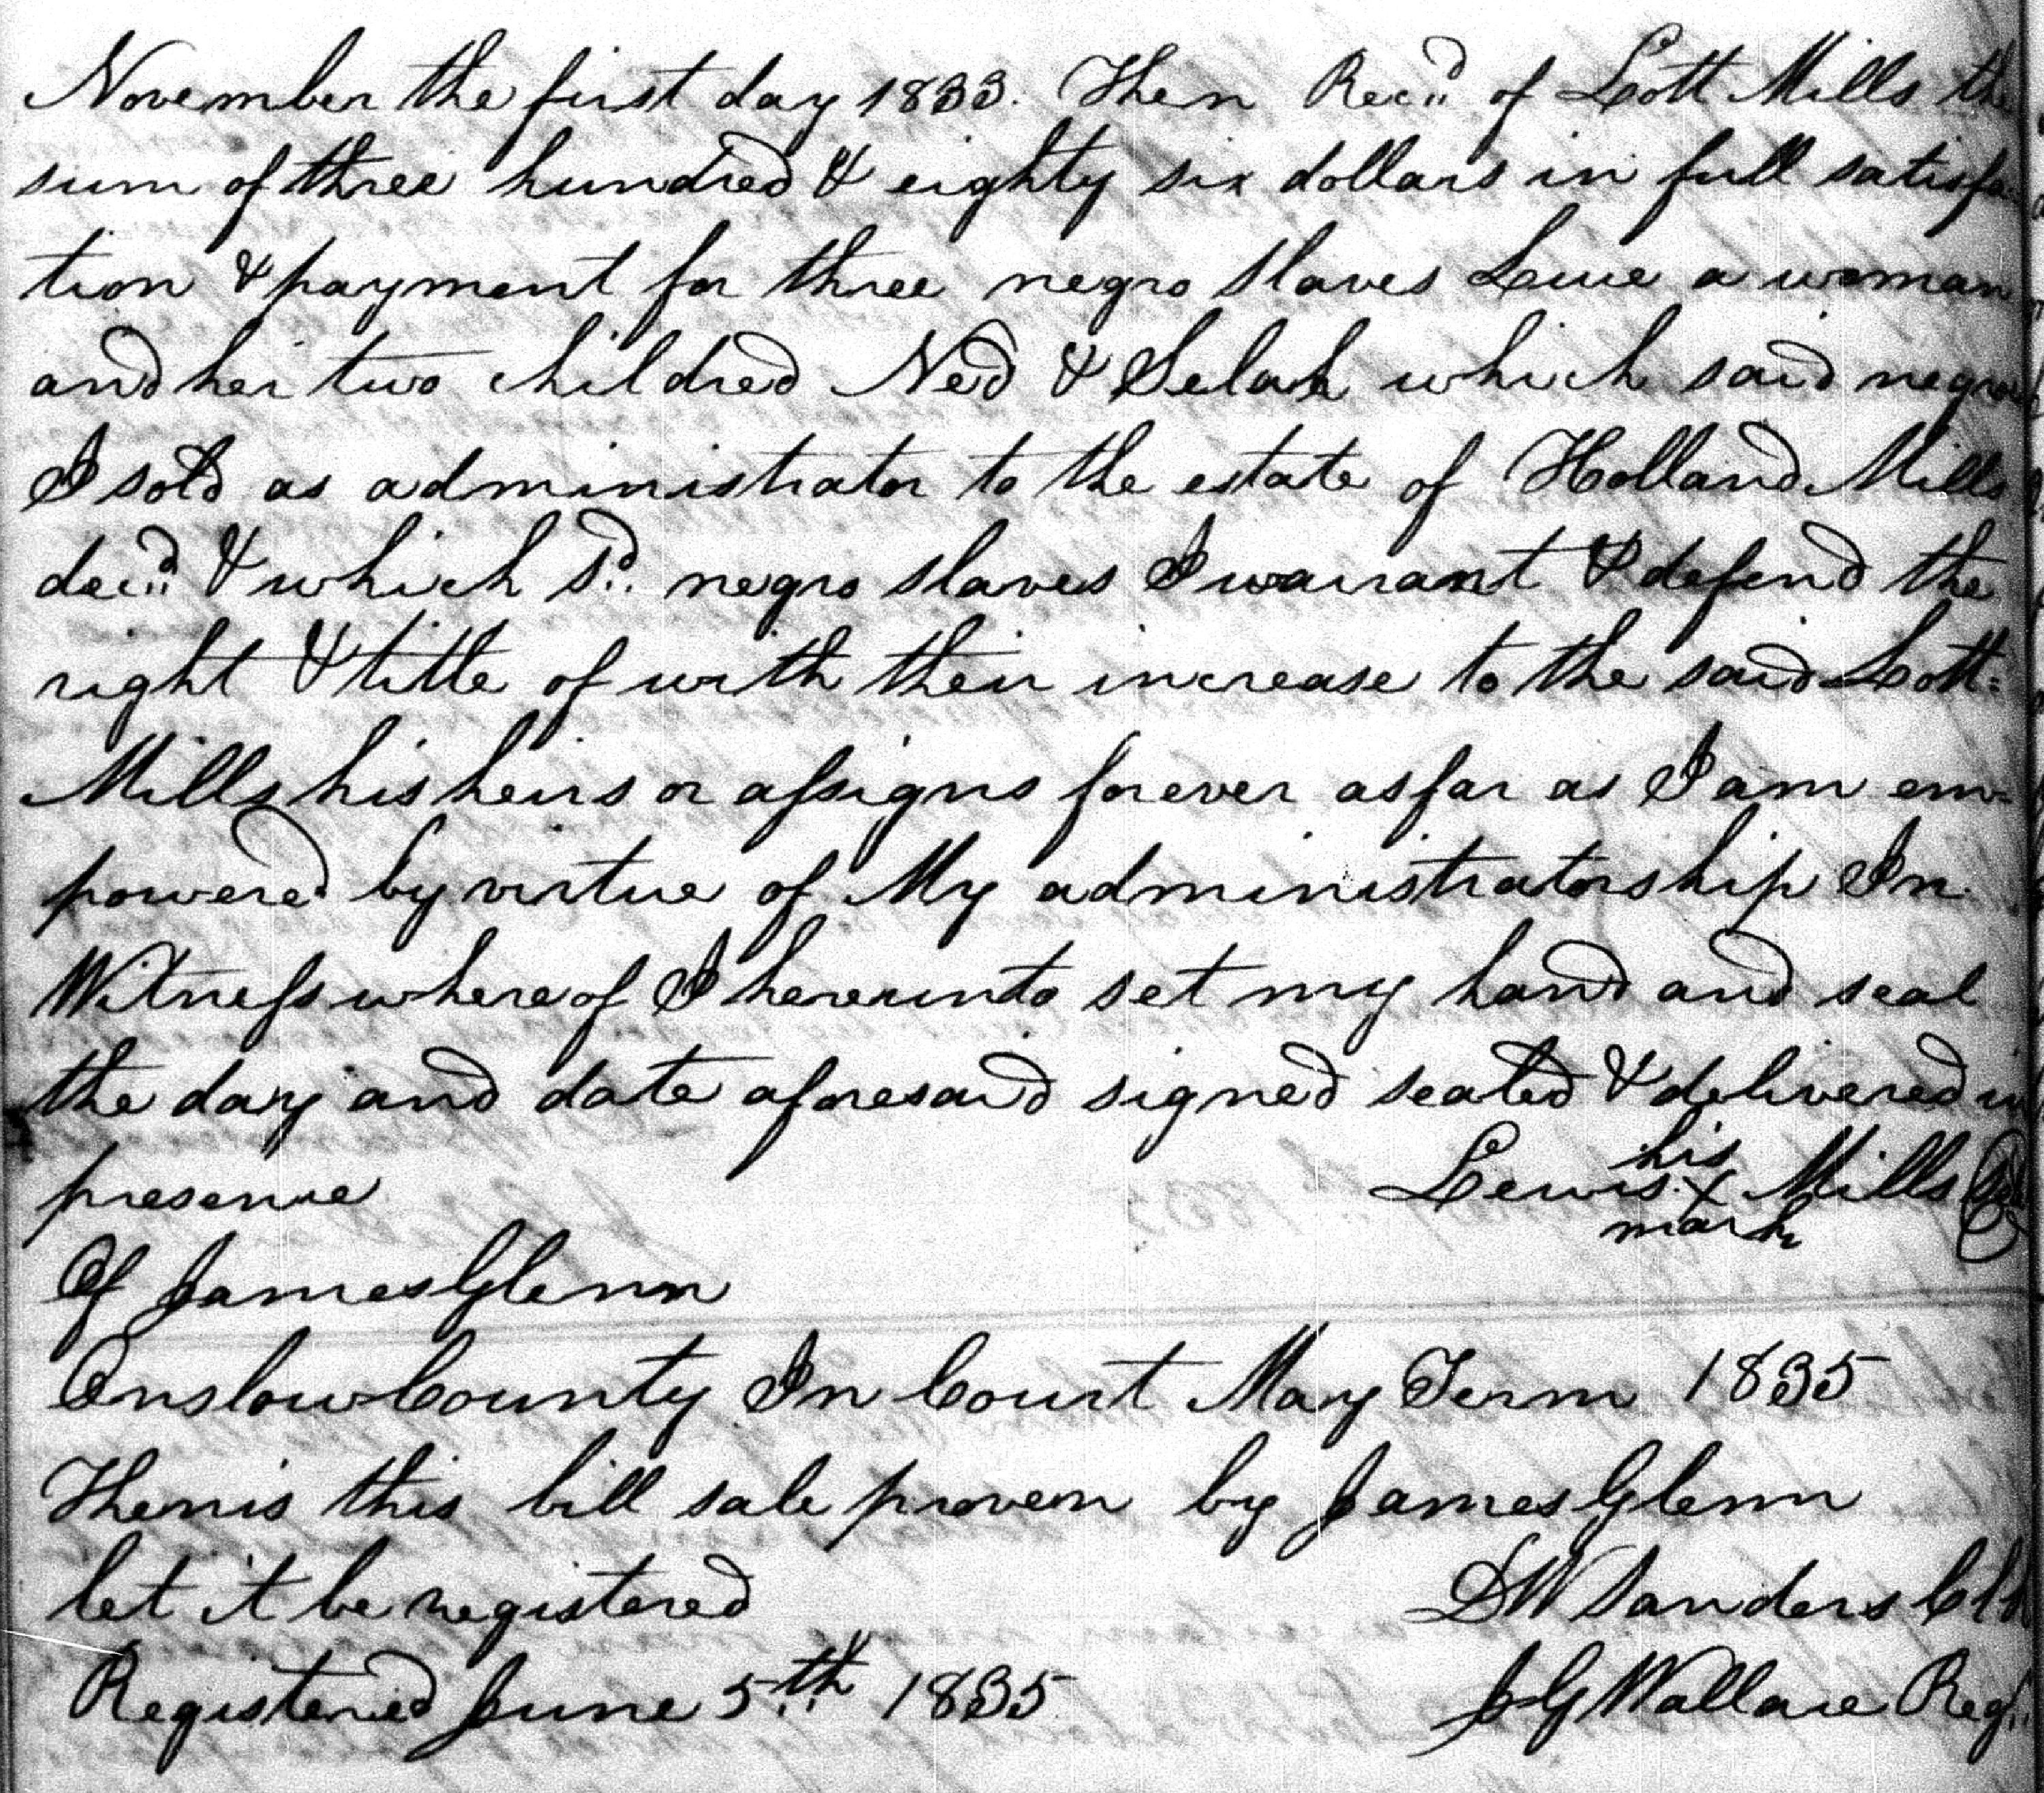 November the first day 1833. Then Recd of Lott Mills the
sum of three hundred & eighty six dollars in full satisfa
tion & payment for three negro slaves Luce a woman
and her two childred Ned & Selah which said negroes
I sold as administrator to the estate of Holland Mills
decd & which sd. negro slaves I warrant & defend the
right & title of with their increase to the said Lott
Mills his heirs or assigns forever as far as I am em-
powered by virtue of My administratorship In
Witness where of I hereunto set my hand and seal
the day and date aforesaid signed sealed & delivered in
presence Lewis his X mark Mills
Of James Glenn
Onslow County In Court May Term 1835
Then is this bill sale proven by James Glenn
let it be registered D W Sanders Clk
Registered June 5th 1835 J G Wallace Regr